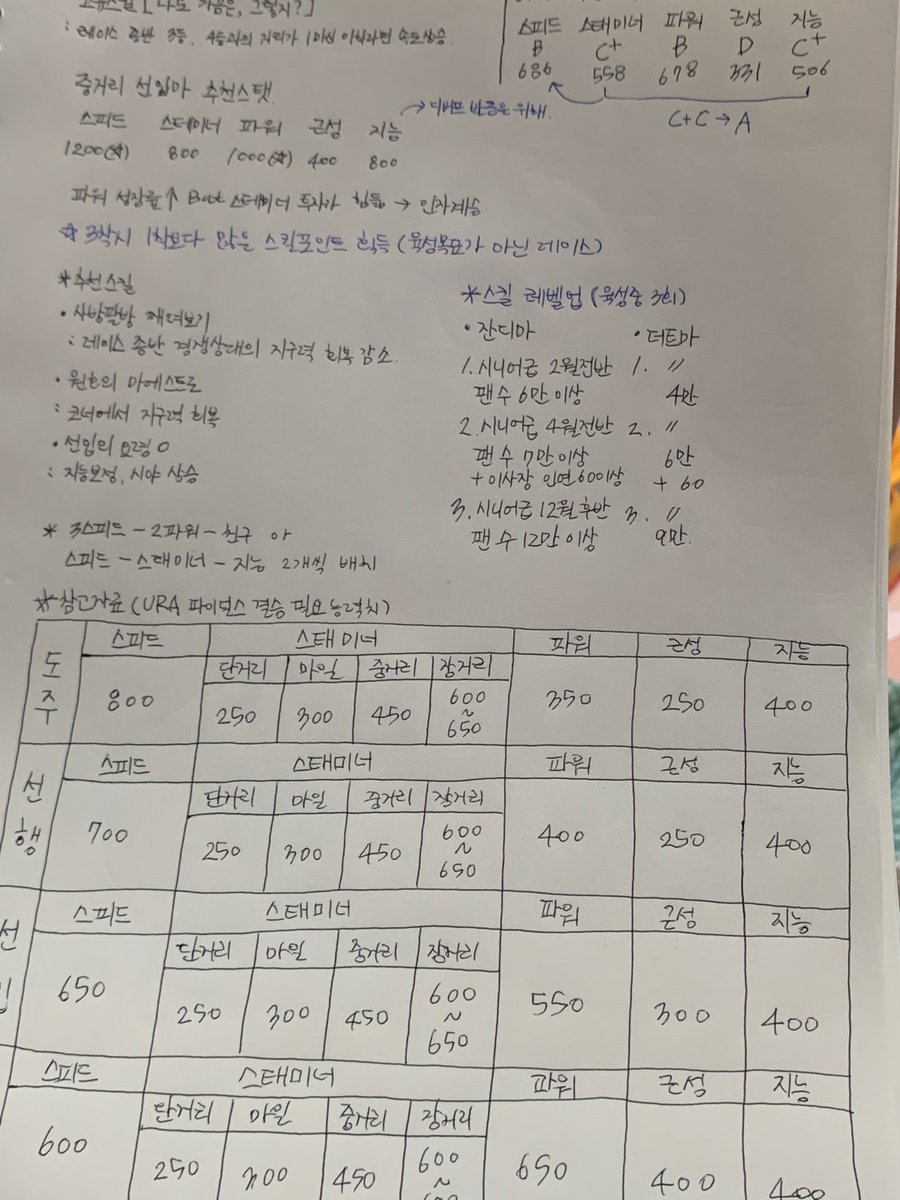 고유스킬 [나도 가끔은, 그렇지?]
: 레이스 종반 3등, 4등과의 거리가 1마신 이하라면 속도상승.
스피드 스태미너 파워 근성 지능
B C+ B D C+
686 558 678 331 506
C+C → A
중거리 선입마 추천스탯.
→ 디버프 반중은 위해.
스피드 스테미너 파워 근성 지능
1200(✩) 800 1000(✩) 400 800
파워 성장률↑ But 스테미너 투자가 힘듦 → 인자계승
☆ 3착시 1착보다 많은 스킬포인트 획득 (육성목표가 아닌 레이스)
*추천스킬
• 사방팔방 째려보기
: 레이스 종반 경쟁상대의 지구력 회복 감소.
• 원호의 마에스트로
: 코너에서 지구력 회복
• 선입의 요령 O
: 지능보정, 시야 상승
* 스킬 레벨업 (육성중 3회)
• 잔디마 • 더트마
1. 시니어급 2월전반 1. 〃
팬 수 6만 이상 4만
2. 시니어급 4월전반 2. 〃
팬 수 7만 이상 6만
+ 이사장 인연 60이상 + 60
3. 시니어급 12월후반 3. 〃
팬 수 12만 이상 9만.
* 3스피드 - 2파워 - 친구 or
스피드 - 스태미너 - 지능 2개씩 배치
☆ 참고자료 (URA 파이널스 결승 필요능력치)
도주
스피드 스태미너 파워 근성 지능
단거리 마일 중거리 장거리
800 250 300 450 600~650 350 250 400
선행
스피드 스태미너 파워 근성 지능
단거리 마일 중거리 장거리
700 250 300 450 600~650 400 250 400
선입
스피드 스태미너 파워 근성 지능
단거리 마일 중거리 장거리
650 250 300 450 600~650 550 300 400
스피드 스태미너 파워 근성 지능
단거리 마일 중거리 장거리
600 250 300 450 600~ 650 400 400